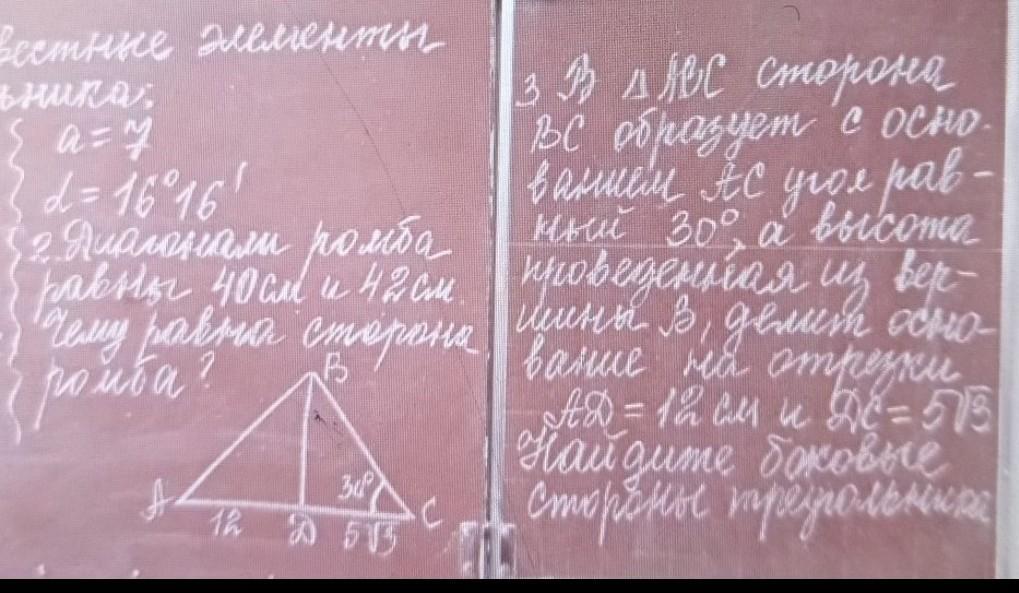 вестные элементы
ьника:
a = 7
α = 16°16'
2. Диагонали ромба
равны 40см и 42см.
Чему равна сторона
ромба?
B
30°
A
C
12
D
5√3
3 В ΔABC сторона
BC образует с осно-
ванием AC угол рав-
ный 30°, а высота
проведенная из вер-
шины B, делит осно-
вание на отрезки
AD = 12 см и DC = 5√3
Найдите боковые
стороны треугольника